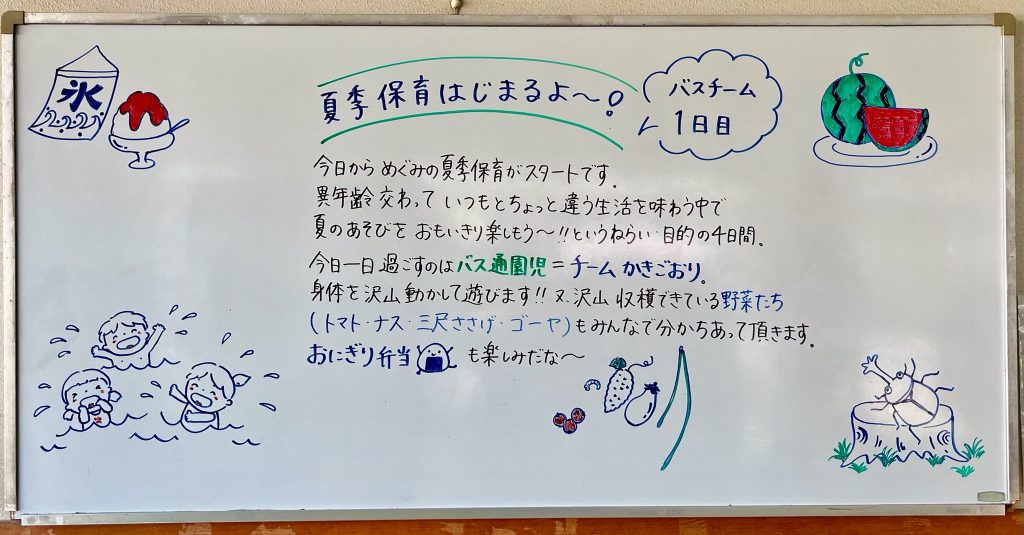 氷
夏季保育はじまるよ〜!
バスチーム
1日目
今日から めぐみの夏季保育がスタートです。
異年齢交わって いつもとちょっと違う生活を味わう中で
夏のあそびを おもいきり楽しもう〜!!というねらい・目的の4日間。
今日一日過ごすのはバス通園児=チームかきごおり。
身体を沢山動かして遊びます!! 又、沢山 収穫できている野菜たち
(トマト・ナス・三尺ささげ・ゴーヤ)もみんなで分かちあって頂きます。
おにぎり弁当 も楽しみだな〜